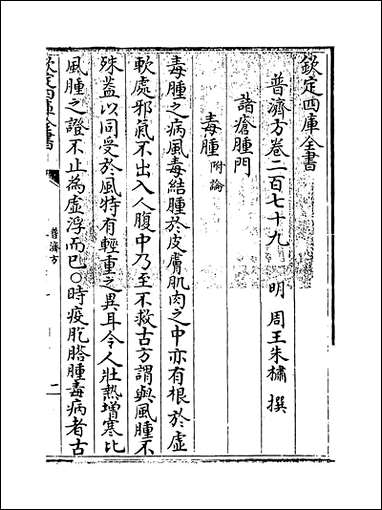 欽定四庫全書
普濟方卷二百七十九 明 周王朱橚 撰
諸瘡腫門
毒腫附論
毒腫之病風毒結腫於皮膚肌肉之中亦有根於虛
軟處邪氣不出入人腹中乃至不救古方謂與風腫不
殊葢以同受於風特有輕重之異耳令人壯熱增寒比
風腫之證不止為虛浮而已○時疫肐𦢊腫毒病者古
欽定四庫全書
普濟方
二